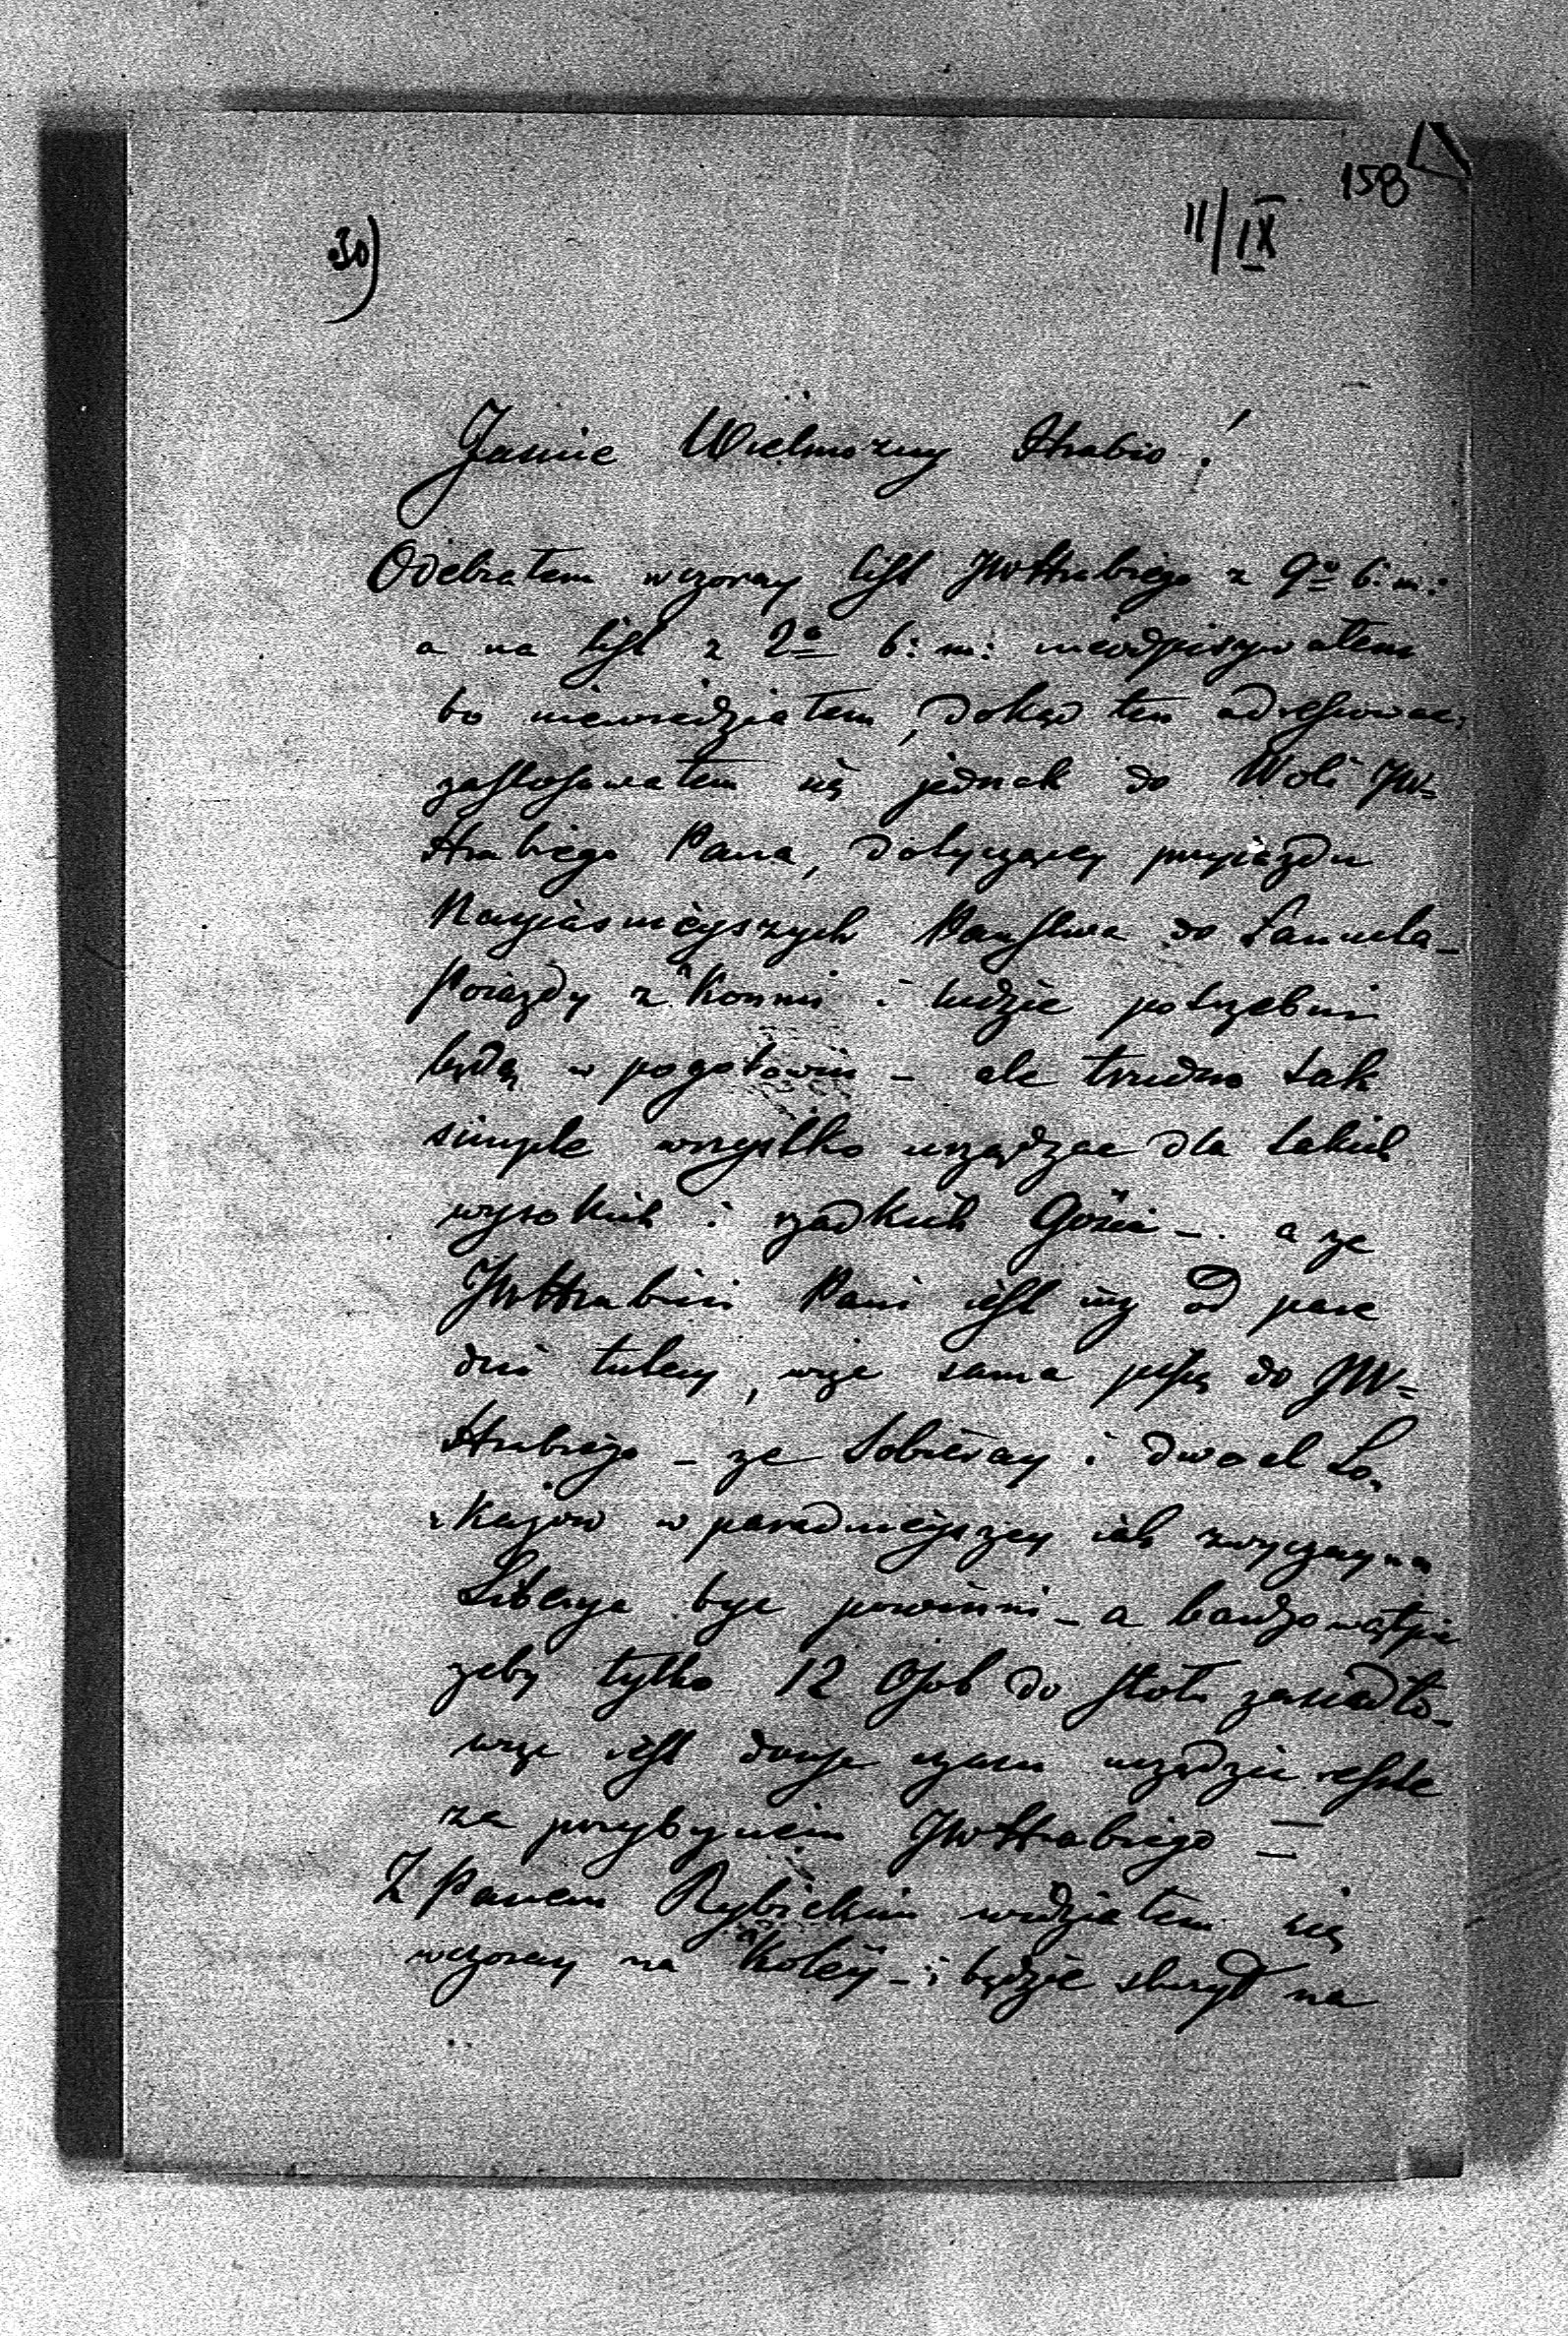 158
11/IX
30)
Jasnie Wielmozny Hrabio!
Odebrałem wczoray list JWHrabiego z 9º b: m:
a na list z 2º b: m: nieodpisywałem
bo niewiedziałem, dokąd ten adresowac,
zastosowałem się jednak do Woli JW=
Hrabiego Pana, dotyczącey przyiazdu
Nayiasnieyszych Panstwa do Łancuta_
Poiazdy z Konmi i ludzie potrzebni
będą w pogotowiu - ale trudno tak
simple wszystko urządzac dla takich
wysokich i rzadkich Gości -. a że
JWHrabini Pani iest iuż od pare
dni tutay, więc sama pisze do JW=
Hrabiego - że Sobieray i dwoch Lo,
kajow w paradnieyszey iak zwyczayna
Liberye byc powinni - a bardzo wątpie
żeby tylko 12 Osob do stołu zasiadło_
więc iest dosyc czasu urządzic reszte
za przybyciem JWHrabiego =
Z Panem Rybickim widziałem się
wczoray na Koleij - i będzie słuzył na